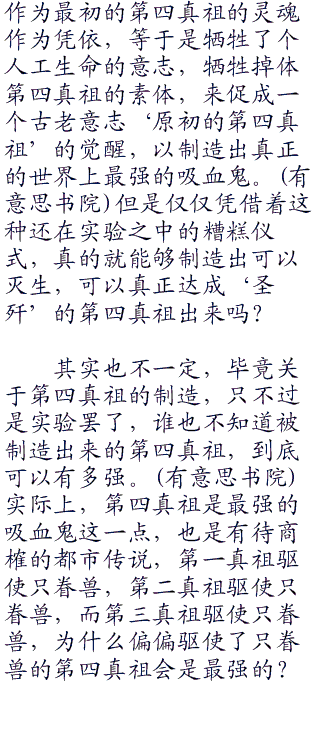 作为最初的第四真祖的灵魂
作为凭依，等于是牺牲了个
人工生命的意志，牺牲掉体
第四真祖的素体，来促成一
个古老意志‘原初的第四真
祖’的觉醒，以制造出真正
的世界上最强的吸血鬼。(有
意思书院)但是仅仅凭借着这
种还在实验之中的糟糕仪
式，真的就能够制造出可以
灭生，可以真正达成‘圣
歼’的第四真祖出来吗？
其实也不一定，毕竟关
于第四真祖的制造，只不过
是实验罢了，谁也不知道被
制造出来的第四真祖，到底
可以有多强。(有意思书院)
实际上，第四真祖是最强的
吸血鬼这一点，也是有待商
榷的都市传说，第一真祖驱
使只眷兽，第二真祖驱使只
眷兽，而第三真祖驱使只眷
兽，为什么偏偏驱使了只眷
兽的第四真祖会是最强的？